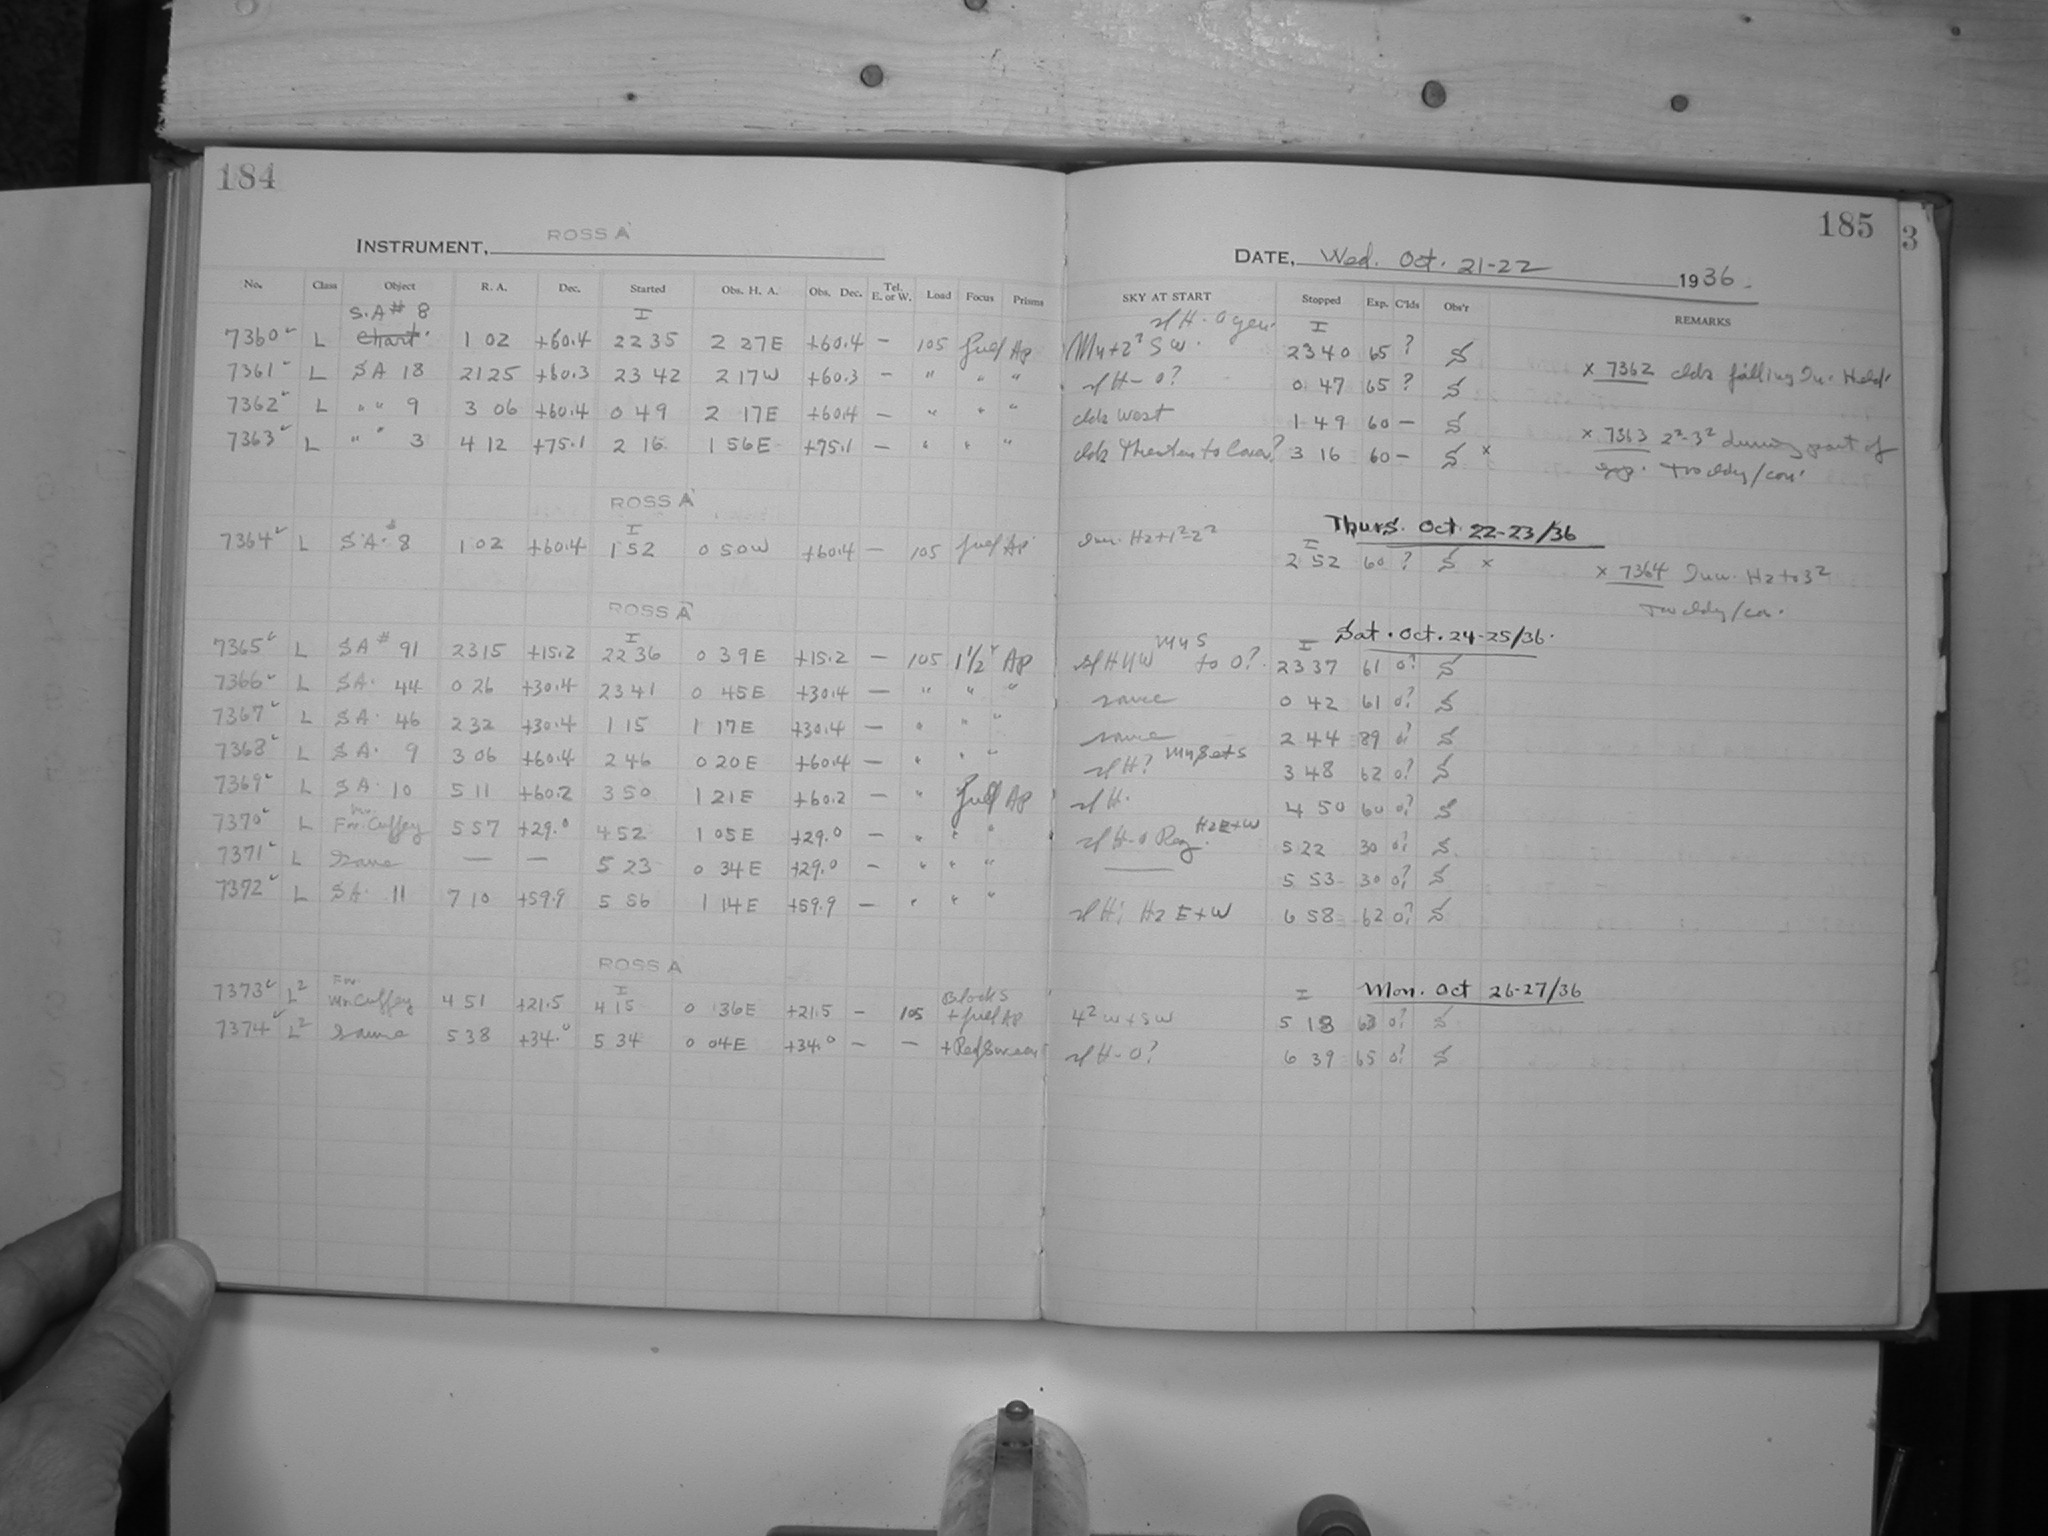 184
185
3
INSTRUMENT, ROSS A
DATE, Wed. Oct. 21-22 1936.
No. Class Object R. A. Dec. Started Obs. H. A. Obs. Dec. Tel. E. or W. Load Focus Prisms SKY AT START Stopped Exp. C'lds Obs'r REMARKS
S.A # 8 I I
7360 L Chart. 1 02 +60.4 22 35 2 27E +60.4 — 105 full Ap 23 40 65 ? S
7361 L SA 18 2125 +60.3 23 42 2 17W +60.3 — " " " 0 47 65 ? S × 7362 clds
7362 L " " 9 3 06 +60.4 0 49 2 17E +60.4 — " " " clds West 1 49 60 — S
7363 L " " 3 4 12 +75.1 2 16 1 56E +75.1 — " " " clds 3 16 60 — S × × 7363 2²-3² during part of
exp.
ROSS A
Thurs. Oct. 22-23/36
I I
7364 L S.A. 8 1 02 +60.4 1 52 0 50W +60.4 — 105 full Ap Hz+1²-2² 2 52 60 ? S × × 7364 Hz to 3²
ROSS A
Sat. Oct. 24-25/36.
I I
7365 L SA # 91 2315 +15.2 22 36 0 39E +15.2 — 105 1½" Ap to 0? 23 37 61 0? S
7366 L SA. 44 0 26 +30.4 23 41 0 45E +30.4 — " " " same 0 42 61 0? S
7367 L SA. 46 2 32 +30.4 1 15 1 17E +30.4 — " " " same 2 44 89 0? S
7368 L SA. 9 3 06 +60.4 2 46 0 20E +60.4 — " " " 3 48 62 0? S
7369 L SA. 10 5 11 +60.2 3 50 1 21E +60.2 — " full Ap 4 50 60 0? S
7370 L For Mr. Cuffey 5 57 +29.0 4 52 1 05E +29.0 — " " " Hz E+W 5 22 30 0? S
7371 L Same — — 5 23 0 34E +29.0 — " " " — 5 53 30 0? S
7372 L SA. 11 7 10 +59.9 5 56 1 14E +59.9 — " " " Hz E+W 6 58 62 0? S
ROSS A
Mon. Oct 26-27/36
I I
7373 L² For Mr Cuffey 4 51 +21.5 4 15 0 36E +21.5 — 105 Blocks + full Ap 4² W+SW 5 18 63 0? S
7374 L² Same 5 38 +34.0 5 34 0 04E +34.0 — — + Red Screen 6 39 65 0? S